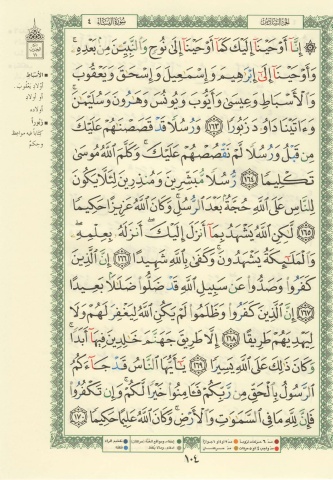 الجزء السادس
سورة النساء
٤
إِنَّا أَوْحَيْنَا إِلَيْكَ كَمَا أَوْحَيْنَا إِلَىٰ نُوحٍ وَالنَّبِيِّينَ مِنْ بَعْدِهِ
وَأَوْحَيْنَا إِلَىٰ إِبْرَاهِيمَ وَإِسْمَاعِيلَ وَإِسْحَاقَ وَيَعْقُوبَ
وَالْأَسْبَاطِ وَعِيسَىٰ وَأَيُّوبَ وَيُونُسَ وَهَارُونَ وَسُلَيْمَانَ
وَآتَيْنَا دَاوُودَ زَبُورًا ١٦٣ وَرُسُلًا قَدْ قَصَصْنَاهُمْ عَلَيْكَ
مِنْ قَبْلُ وَرُسُلًا لَمْ نَقْصُصْهُمْ عَلَيْكَ وَكَلَّمَ اللَّهُ مُوسَىٰ
تَكْلِيمًا ١٦٤ رُسُلًا مُبَشِّرِينَ وَمُنْذِرِينَ لِئَلَّا يَكُونَ
لِلنَّاسِ عَلَى اللَّهِ حُجَّةٌ بَعْدَ الرُّسُلِ وَكَانَ اللَّهُ عَزِيزًا حَكِيمًا
١٦٥ لَٰكِنِ اللَّهُ يَشْهَدُ بِمَا أَنْزَلَ إِلَيْكَ أَنْزَلَهُ بِعِلْمِهِ
وَالْمَلَائِكَةُ يَشْهَدُونَ وَكَفَىٰ بِاللَّهِ شَهِيدًا ١٦٦ إِنَّ الَّذِينَ
كَفَرُوا وَصَدُّوا عَنْ سَبِيلِ اللَّهِ قَدْ ضَلُّوا ضَلَالًا بَعِيدًا
١٦٧ إِنَّ الَّذِينَ كَفَرُوا وَظَلَمُوا لَمْ يَكُنِ اللَّهُ لِيَغْفِرَ لَهُمْ وَلَا
لِيَهْدِيَهُمْ طَرِيقًا ١٦٨ إِلَّا طَرِيقَ جَهَنَّمَ خَالِدِينَ فِيهَا أَبَدًا
وَكَانَ ذَٰلِكَ عَلَى اللَّهِ يَسِيرًا ١٦٩ يَا أَيُّهَا النَّاسُ قَدْ جَاءَكُمُ
الرَّسُولُ بِالْحَقِّ مِنْ رَبِّكُمْ فَآمِنُوا خَيْرًا لَكُمْ وَإِنْ تَكْفُرُوا
فَإِنَّ لِلَّهِ مَا فِي السَّمَاوَاتِ وَالْأَرْضِ وَكَانَ اللَّهُ عَلِيمًا حَكِيمًا ١٧٠
الأسباط
أولاد يعقوب
أو أولاد
أولاده
زبورا
كتابا فيه مواعظ
وحكم
١٠٤